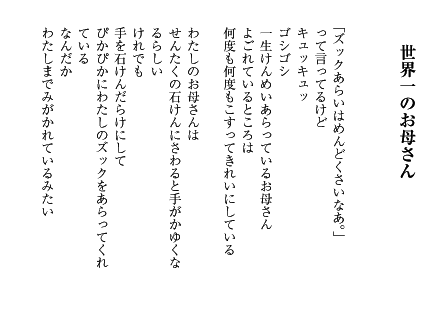 世界一のお母さん
「ズックあらいはめんどくさいなあ。」
って言ってるけど
キュッキュッ
ゴシゴシ
一生けんめいあらっているお母さん
よごれているところは
何度も何度もこすってきれいにしている
わたしのお母さんは
せんたくの石けんにさわると手がかゆくな
るらしい
けれでも
手を石けんだらけにして
ぴかぴかにわたしのズックをあらってくれ
ている
なんだか
わたしまでみがかれているみたい